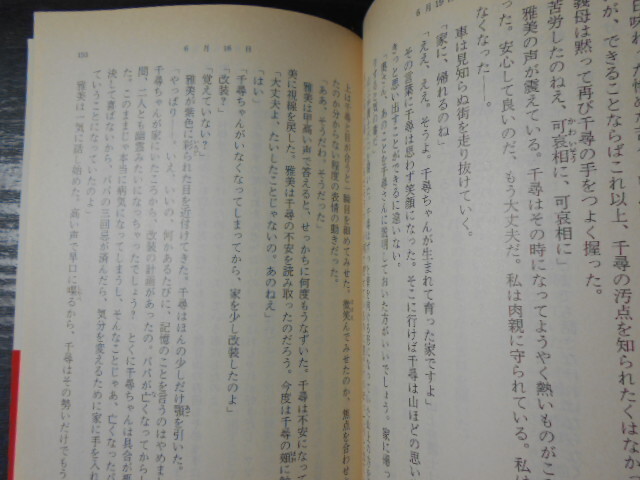 6月19日
られた悔の
だが、できることならばこれ以上、千尋の汚点を知られたくはなか
義母は黙って再び千尋の手をつよく握った。
苦労したのねえ、可哀相に、可哀相に」
かわいそう
雅美の声が震えている。千尋はその時になってようやく熱いものがこ
った。安心して良いのだ、もう大丈夫だ。私は肉親に守られている。私は
なくなった——。
車は見知らぬ街を走り抜けていく。
「家に、帰れるのね」
「ええ、ええ、そうよ。千尋ちゃんが生まれて育った家ですよ」
その言葉に千尋は思わず笑顔になった。そこに行けば千尋は山ほどの思い
きっと思い出すことができるに違いない。
「奥さん、あのことを千尋さんに説明しておいた方がいいでしょう。家に帰っ
103 6月19日
上は千尋と目が合うと、一瞬目を細めてみせた。微笑んでみせたのか、焦点を合わせ
たのか分からない程度の表情の動きだった。
「ああ、そうだわ、そうだった」
雅美は甲高い声で答えると、せっかちに何度もうなずいた。千尋は不安になって
美に視線を戻した。雅美は千尋の不安を読み取ったのだろう。今度は千尋の頬に
「大丈夫よ、たいしたことじゃないの。あのねえ」
「はい」
「千尋ちゃんがいなくなってしまってから、家を少し改装したのよ」
「改装？」
「覚えていない？」
雅美が紫色に彩られた目を近付けてきた。千尋はほんの少しだけ顎を引いた。
「やっぱり——。いえ、いいの。何かあるたびに、記憶のことを言うのはやめま
千尋ちゃんが家にいたころから、改装の計画があったの。パパが亡くなってから
間、二人とも幽霊みたいになっちゃったでしょう？　とくに千尋ちゃんは具合が悪
た。このままじゃ本当に病気になってしまうし、そんなことじゃあ、亡くなったパ
決して喜ばないから、パパの三回忌が済んだら、気分を変えるために家に手を入れ
ていうことになっていたのよ」
雅美は一気に話し始めた。高い声で早口に喋るから、千尋はその勢いだけでもう